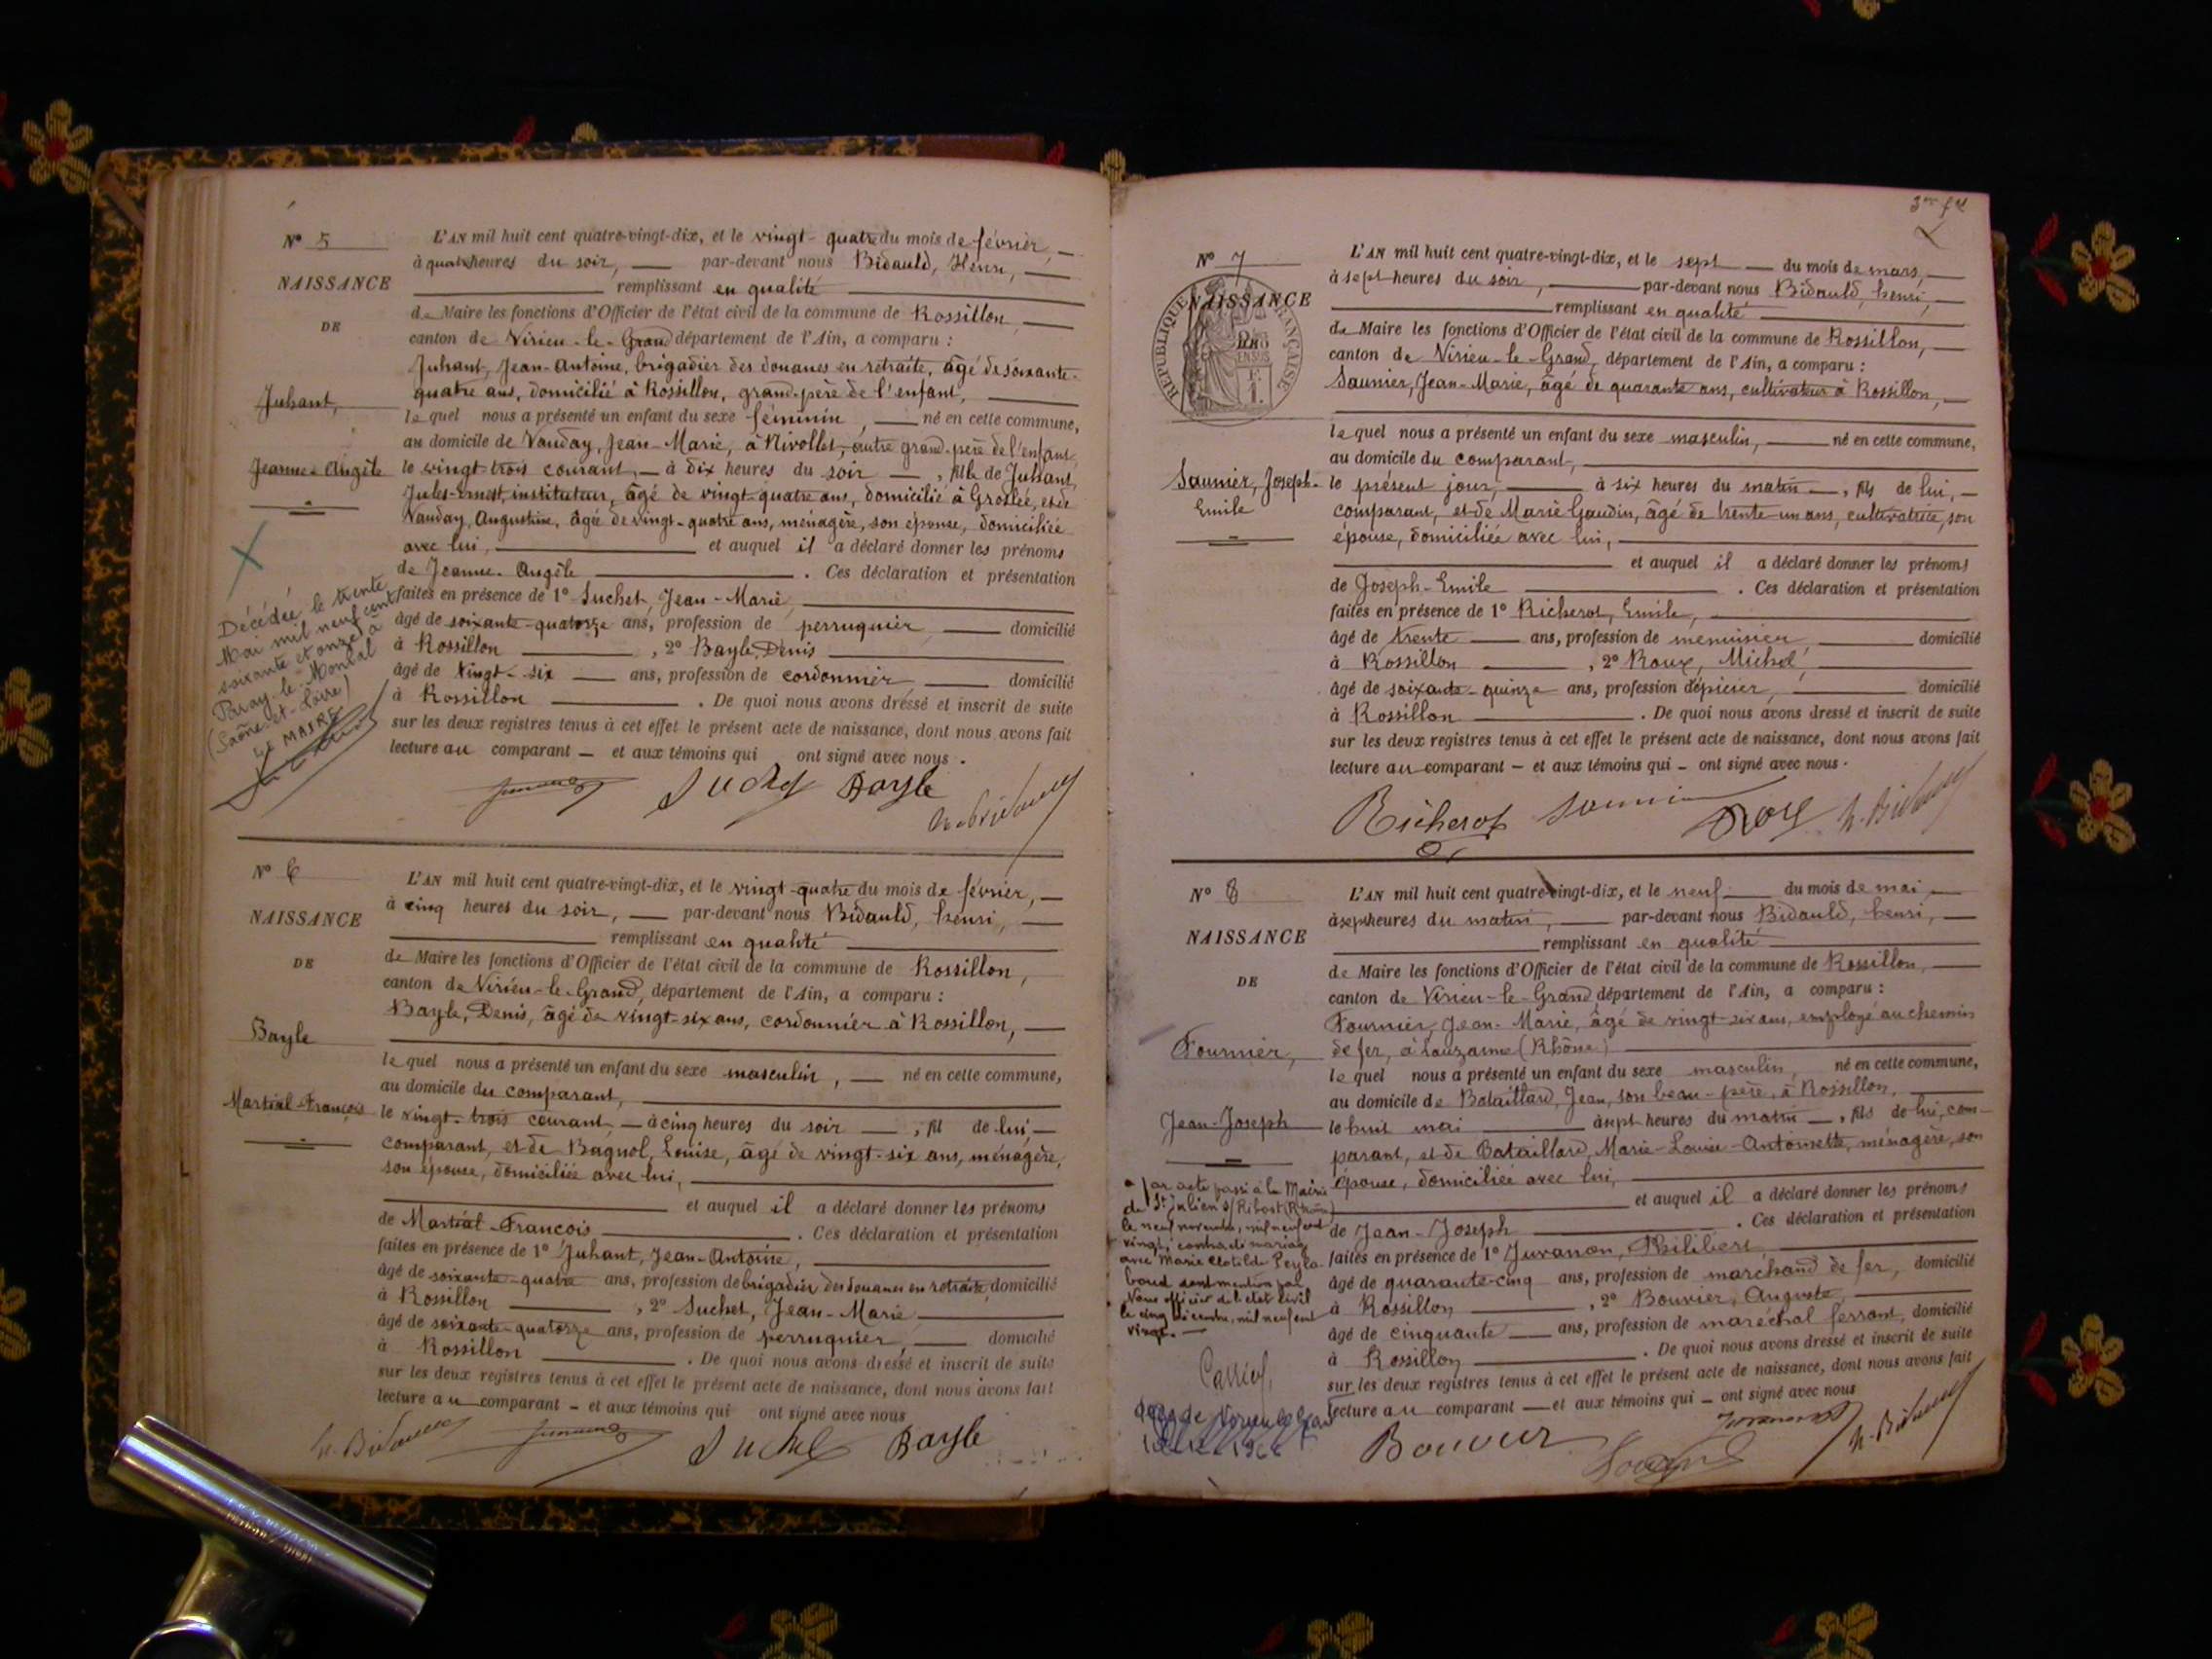 N° 5
NAISSANCE
DE
Juhant,
Jeanne-Angèle
L'AN mil huit cent quatre-vingt-dix, et le vingt-quatre du mois de février,
à quatre heures du soir, par-devant nous Bidauld, Henri,
remplissant en qualité
de Maire les fonctions d'Officier de l'état civil de la commune de Rossillon,
canton de Virieu-le-Grand département de l'Ain, a comparu :
Juhant, Jean-Antoine, brigadier des douanes en retraite, âgé de soixante-
quatre ans, domicilié à Rossillon, grand-père de l'enfant,
le quel nous a présenté un enfant du sexe féminin, né en cette commune,
au domicile de Vauday, Jean-Marie, à Nivollet, autre grand-père de l'enfant
le vingt-trois courant, à dix heures du soir, fille de Juhant,
Jules-Ernest, instituteur, âgé de vingt-quatre ans, domicilié à Groslée, et de
Vauday, Augustine, âgée de vingt-quatre ans, ménagère, son épouse, domiciliée
avec lui, et auquel il a déclaré donner les prénoms
de Jeanne-Angèle. Ces déclaration et présentation
faites en présence de 1° Suchet, Jean-Marie,
âgé de soixante-quatorze ans, profession de perruquier, domicilié
à Rossillon, 2° Bayle, Denis
âgé de vingt-six ans, profession de cordonnier, domicilié
à Rossillon. De quoi nous avons dressé et inscrit de suite
sur les deux registres tenus à cet effet le présent acte de naissance, dont nous avons fait
lecture au comparant – et aux témoins qui ont signé avec nous.
Décédée le trente
Mai mil neuf cent
soixante et onze à
Paray-le-Monial
(Saône-et-Loire)
LE MAIRE,
Suchet Bayle
h. Bidauld
N° 6
NAISSANCE
DE
Bayle
Martial-François
L'AN mil huit cent quatre-vingt-dix, et le vingt-quatre du mois de février,
à cinq heures du soir, par-devant nous Bidauld, henri,
remplissant en qualité
de Maire les fonctions d'Officier de l'état civil de la commune de Rossillon,
canton de Virieu-le-Grand, département de l'Ain, a comparu :
Bayle, Denis, âgé de vingt-six ans, cordonnier à Rossillon,
le quel nous a présenté un enfant du sexe masculin, né en cette commune,
au domicile du comparant,
le vingt-trois courant, à cinq heures du soir, fil de lui
comparant, et de Bagnol, Louise, âgé de vingt-six ans, ménagère,
son épouse, domiciliée avec lui,
et auquel il a déclaré donner les prénoms
de Martial-François. Ces déclaration et présentation
faites en présence de 1° Juhant, Jean-Antoine,
âgé de soixante-quatre ans, profession de brigadier des douanes en retraite, domicilié
à Rossillon, 2° Suchet, Jean-Marie
âgé de soixante-quatorze ans, profession de perruquier, domicilié
à Rossillon. De quoi nous avons dressé et inscrit de suite
sur les deux registres tenus à cet effet le présent acte de naissance, dont nous avons fait
lecture au comparant – et aux témoins qui ont signé avec nous
h. Bidauld Suchet Bayle
N° 7
NAISSANCE
RÉPUBLIQUE FRANÇAISE
Saunier, Joseph-
Emile
L'AN mil huit cent quatre-vingt-dix, et le sept du mois de mars,
à sept heures du soir, par-devant nous Bidauld, henri,
remplissant en qualité
de Maire les fonctions d'Officier de l'état civil de la commune de Rossillon,
canton de Virieu-le-Grand, département de l'Ain, a comparu :
Saunier, Jean-Marie, âgé de quarante ans, cultivateur à Rossillon,
le quel nous a présenté un enfant du sexe masculin, né en cette commune,
au domicile du comparant,
le présent jour, à six heures du matin, fils de lui,
comparant, et de Marie Gaudin, âgé de trente-un ans, cultivatrice, son
épouse, domiciliée avec lui,
et auquel il a déclaré donner les prénoms
de Joseph-Emile. Ces déclaration et présentation
faites en présence de 1° Richerot, Emile,
âgé de trente ans, profession de menuisier, domicilié
à Rossillon, 2° Roux, Michel,
âgé de soixante-quinze ans, profession d'épicier, domicilié
à Rossillon. De quoi nous avons dressé et inscrit de suite
sur les deux registres tenus à cet effet le présent acte de naissance, dont nous avons fait
lecture au comparant – et aux témoins qui – ont signé avec nous.
Richerot h. Bidauld
N° 8
NAISSANCE
DE
Fournier,
Jean-Joseph
L'AN mil huit cent quatre-vingt-dix, et le neuf du mois de mai
à sept heures du matin, par-devant nous Bidauld, henri,
remplissant en qualité
de Maire les fonctions d'Officier de l'état civil de la commune de Rossillon,
canton de Virieu-le-Grand département de l'Ain, a comparu :
Fournier, Jean-Marie, âgé de vingt-six ans, employé au chemin
de fer, à Lauzanne (Rhône)
le quel nous a présenté un enfant du sexe masculin, né en cette commune,
au domicile de Bataillard, Jean, son beau-père, à Rossillon,
le huit mai à sept heures du matin, fils de lui, com-
parant, et de Bataillard, Marie-Louise-Antoinette, ménagère, son
épouse, domiciliée avec lui,
et auquel il a déclaré donner les prénoms
de Jean-Joseph. Ces déclaration et présentation
faites en présence de 1° Juvanon, Philibert
âgé de quarante-cinq ans, profession de marchand de fer, domicilié
à Rossillon, 2° Bouvier, Auguste,
âgé de cinquante ans, profession de maréchal ferrant, domicilié
à Rossillon. De quoi nous avons dressé et inscrit de suite
sur les deux registres tenus à cet effet le présent acte de naissance, dont nous avons fait
lecture au comparant et aux témoins qui – ont signé avec nous
Par acte passé à la Mairie
de St Julien s/ Bibost (Rhône)
le neuf novembre, mil neuf cent
vingt, contracté mariage
avec Marie Clotilde
dont mention par
Nous officier de l'état civil
le cinq décembre, mil neuf cent
vingt.
Bouvier h. Bidauld